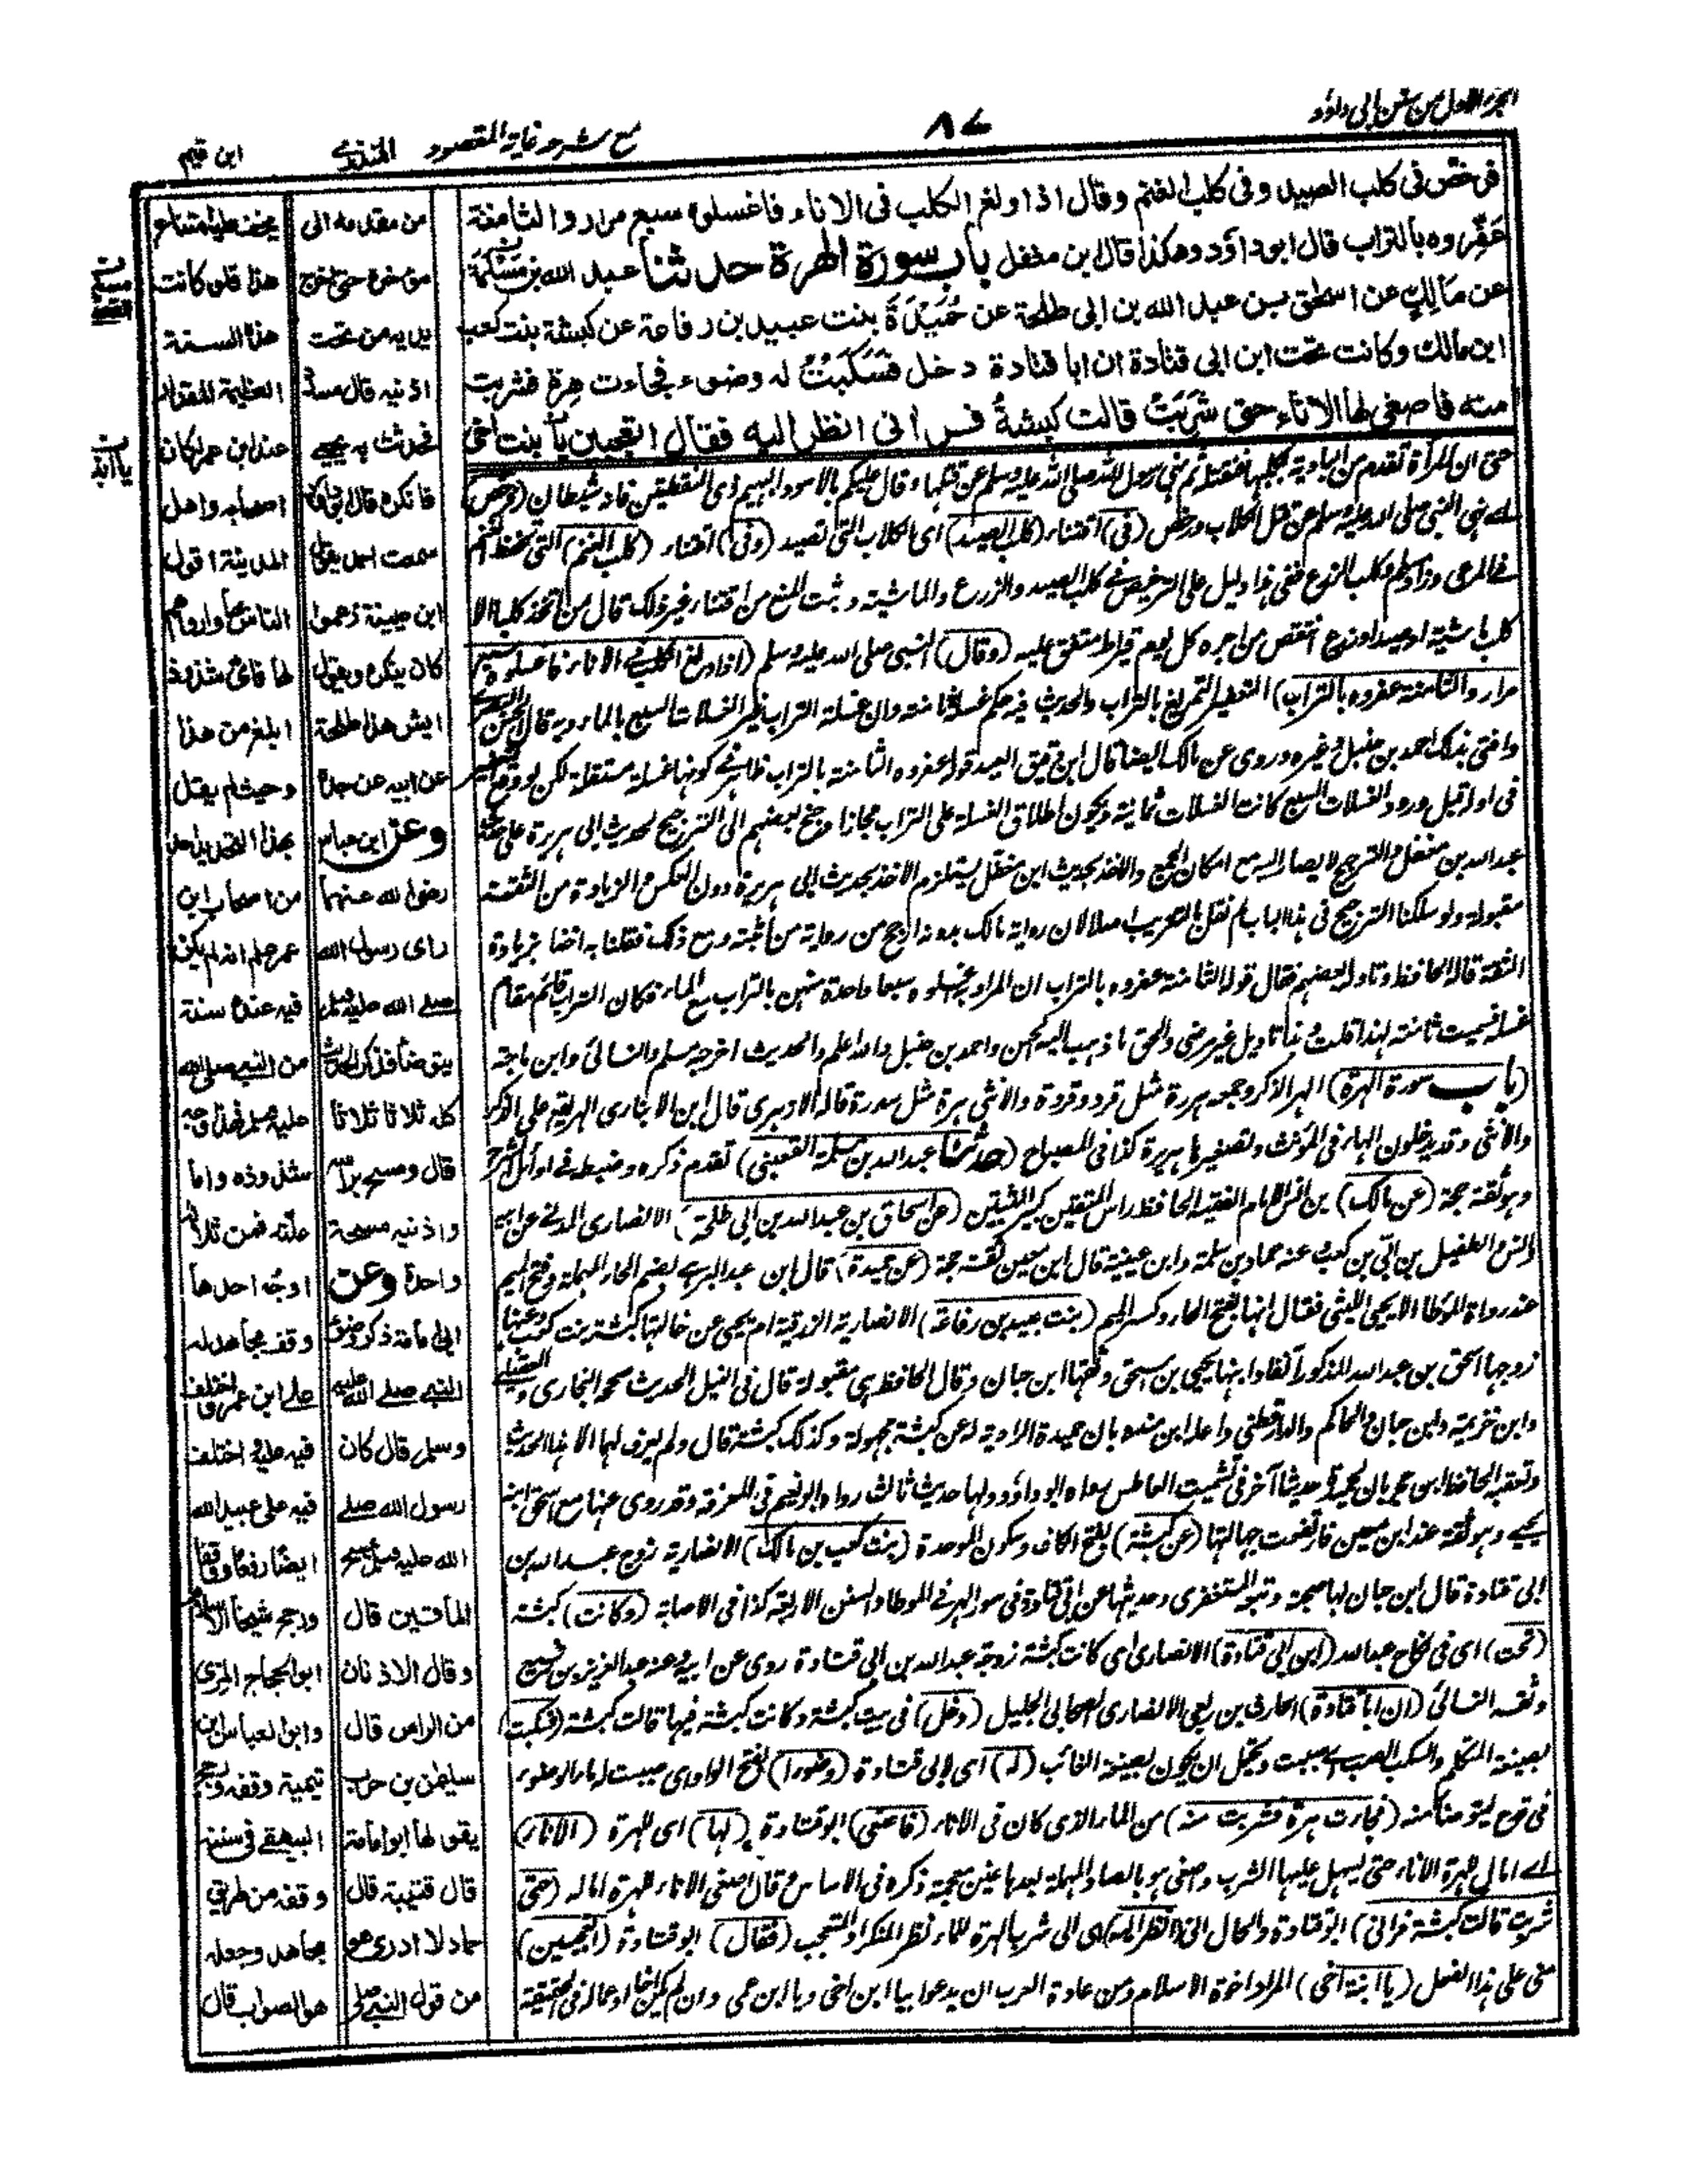 الجزء الاول من سنن ابى داؤد
٨٧
مع شرحه غاية المقصود
المنذرى
ابن قيم
فرخص فى كلب الصيد وفى كلب الغنم وقال اذا ولغ الكلب فى الاناء فاغسلوه سبع مرار والثامنة
عَفِّروه بالتراب قال ابوداؤد وهكذا قال ابن مغفل باب سورة الهرة حدثنا عبد الله بن مَسْلَمَة
عن مَالِكٍ عن اسحٰق بن عبد الله بن ابى طلحة عن حُمَيْدَةَ بنت عبيد بن رفاعة عن كبشة بنت كعب
ابن مالك وكانت تحت ابن ابى قتادة ان ابا قتادة دخل فَسَكَبَتْ له وضوء فجاءت هرة فشربت
منه فاصغى لها الاناء حتى شَرِبَتْ قالت كبشةُ فرانى انظر اليه فقال اتعجبين يا بنت اخى
حتى ان المرأة تقدم من البادية بكلبها فنقتله ثم نهى رسول الله صلى الله عليه وسلم عن قتلها وقال عليكم بالاسود البهيم ذى النقطتين فانه شيطان (ورخص)
اے نهى النبى صلى الله عليه وسلم عن قتل الكلاب ورخص (فى) اقتناء (كلب الصيد) اى الكلاب التى تصيد (وفى) اقتناء (كلب الغنم) التى تحفظ الغنم
فى المرعى وزاد مسلم وكلب الزرع ففى هذا دليل على الترخيص فى كلب الصيد والزرع والماشية وثبت المنع من اقتناء غير ذلك قال من اتخذ كلبا الا
كلب ماشية او صيد او زرع انتقص من اجره كل يوم قيراط متفق عليه (وقال) النبى صلى الله عليه وسلم (اذا ولغ الكلب فى الاناء فاغسلوه سبع
مرار والثامنة عفروه بالتراب) التعفير التمريغ بالتراب والحديث فيه حكم غسلة ثامنة وان غسلة التراب غير الغسلات السبع بالماء وبه قال الحسن البصرى
وافتى بذلك احمد بن حنبل وغيره وروى عن مالك ايضا قال ابن دقيق العيد قوله عفروه الثامنة بالتراب ظاهر فى كونها غسلة مستقلة لكن لو وقع التعفير
فى اوله قبل ورود الغسلات السبع كانت الغسلات ثمانية ويكون اطلاق الغسلة على التراب مجازا وجنح بعضهم الى الترجيح لحديث ابى هريرة على حديث
عبدالله بن مغفل والترجيح لا يصار اليه مع امكان الجمع والاخذ بحديث ابن مغفل يستلزم الاخذ بحديث ابى هريرة دون العكس والزيادة من الثقة
مقبولة ولو سلكنا الترجيح فى هذا الباب لم نقل بالتتريب اصلا لان رواية مالك بدونه ارجح من رواية من اثبته ومع ذلك فقلنا به اخذا بزيادة
الثقة قاله الحافظ وتاوله بعضهم فقال قوله الثامنة عفروه بالتراب ان المراد اغسلوه سبعا واحدة منهن بالتراب مع الماء فكان التراب قائم مقام
غسلة فسميت ثامنة لهذا قلت هذا تاويل غير مرضى والحق ما ذهب اليه الحسن واحمد بن حنبل والله اعلم والحديث اخرجه مسلم والنسائى وابن ماجة
(باب سورة الهرة) الهر الذكر وجمعه هررة مثل قرد وقردة والانثى هرة مثل سدرة قاله الازهرى قال ابن الانبارى الهر يقع على الذكر
والانثى وقد يدخلون الهاء فى المؤنث وتصغيرها هريرة كذا فى المصباح (حدثنا عبدالله بن مسلمة القعنبى) تقدم ذكره وضبطه فى اوائل الشرح
وهو ثقة حجة (عن مالك) بن انس الامام الفقيه الحافظ راس المتقنين كبير المثبتين (عن اسحاق بن عبدالله بن ابى طلحة) الانصارى المدنى عن ابيه
وانس والطفيل بن ابى بن كعب عنه حماد بن سلمة وابن عيينة قال ابن معين ثقة حجة (عن حميدة) قال ابن عبدالبر هى بضم الحاء المهملة وفتح الميم
عند رواة الموطا الا يحيى الليثى فقال انها بفتح الحاء وكسر الميم (بنت عبيد بن رفاعة) الانصارية الزرقية ام يحيى عن خالتها كبشة بنت كعب وعنها
زوجها اسحق بن عبدالله المذكور آنفا وابنها يحيى بن اسحق وثقها ابن حبان وقال الحافظ هى مقبولة قال فى النيل الحديث صححه البخارى والعقيلى
وابن خزيمة وابن حبان والحاكم والدارقطنى واعله ابن منده بان حميدة الراوية له عن كبشة مجهولة وكذلك كبشة قال ولم يعرف لهما الا هذا الحديث
وتعقبه الحافظ ابن حجر بان لحميدة حديثا آخر فى تشميت العاطس رواه ابوداؤد ولها حديث ثالث رواه ابونعيم فى المعرفة وقد روى عنها مع اسحق ابنه
يحيى وهو ثقة عند ابن معين فارتفعت جهالتها (عن كبشة) بفتح الكاف وسكون الموحدة (بنت كعب بن مالك) الانصارية زوج عبدالله بن
ابى قتادة قال ابن حبان لها صحبة وتبعه المستغفرى وحديثها عن ابى قتادة فى سور الهر فى الموطا والسنن الاربعة كذا فى الاصابة (وكانت) كبشة
(تحت) اى فى نكاح عبدالله (ابن ابى قتادة) الانصارى اى كانت كبشة زوجة عبدالله بن ابى قتادة روى عن ابيه وعنه عبدالعزيز بن رفيع
وثقه النسائى (ان ابا قتادة) الحارث بن ربعى الانصارى الصحابى الجليل (دخل) فى بيت كبشة وكانت كبشة فيها قالت كبشة (فسكبت)
بصيغة المتكلم والسكب الصب اى صببت ويحتمل ان يكون بصيغة الغائب (له) اى لابى قتادة (وضوءا) بفتح الواو اى صببت له ماء الوضوء
فى قدح ليتوضأ منه (فجاءت هرة فشربت منه) من الماء الذى كان فى الاناء (فاصغى) ابوقتادة (لها) اى للهرة (الاناء)
اے امال للهرة الاناء حتى يسهل عليها الشرب واصغى هو بالصاد المهملة بعدها غين معجمة ذكره فى الاساس وقال اصغى الاناء للهرة اماله (حتى
شربت قالت كبشة فرانى) ابوقتادة والحال انى (انظر اليه) اى الى شرب الهرة للماء نظر المنكر او المتعجب (فقال) ابوقتادة (اتعجبين)
منى على هذا الفعل (يا ابنة اخى) المراد اخوة الاسلام ومن عادة العرب ان يدعوا بيا ابن اخى ويا ابن عمى وان لم يكن اخا او عما له فى الحقيقة
من مقدمه الى
مؤخره حتى اخرج
يديه من تحت
اذنيه قال مسدد
فحدثت به يحيى
فانكره قال ابوداؤد
سمعت احمد يقول
ابن عيينة زعموا
كان ينكره ويقول
ايش هذا طلحة
عن ابيه عن جده
وعن ابن عباس
رضى الله عنهما
راى رسول الله
صلى الله عليه وسلم
يتوضأ فذكر الحديث
كله ثلاثا ثلاثا
قال ومسح براسه
واذنيه مسحة
واحدة وعن
ابى امامة ذكر وضوء
النبى صلى الله عليه
وسلم قال كان
رسول الله صلى
الله عليه وسلم يمسح
المأقين قال
وقال الاذنان
من الراس قال
سليمٰن بن حرب
يقولها ابوامامة
قال قتيبة قال
حماد لا ادرى هو
من قول النبى صلى
هذا فلو كانت
هذه السنة
العظيمة المقدار
عند ابن عمر لكان
اصحابه واهل
المدينة اقول
ابلغ من هذا
وحيث لم يقل
بهذا التحديد احد
من اصحاب ابن
عمر علم انه لم يكن
فيه عنده سنة
من النبى صلى الله
مثل وذه واما
اوجه احدها
وقف مجاهد له
على ابن عمر واختلف
فيه عليه واختلف
فيه على عبيد الله
ايضا رفعا ووقفا
ورجح شيخا الاسلام
ابو الحجاج المزى
وابو العباس ابن
تيمية وقفه ورجح
البيهقى فى سننه
وقفه من طريق
مجاهد وجعله
هو الصواب قال